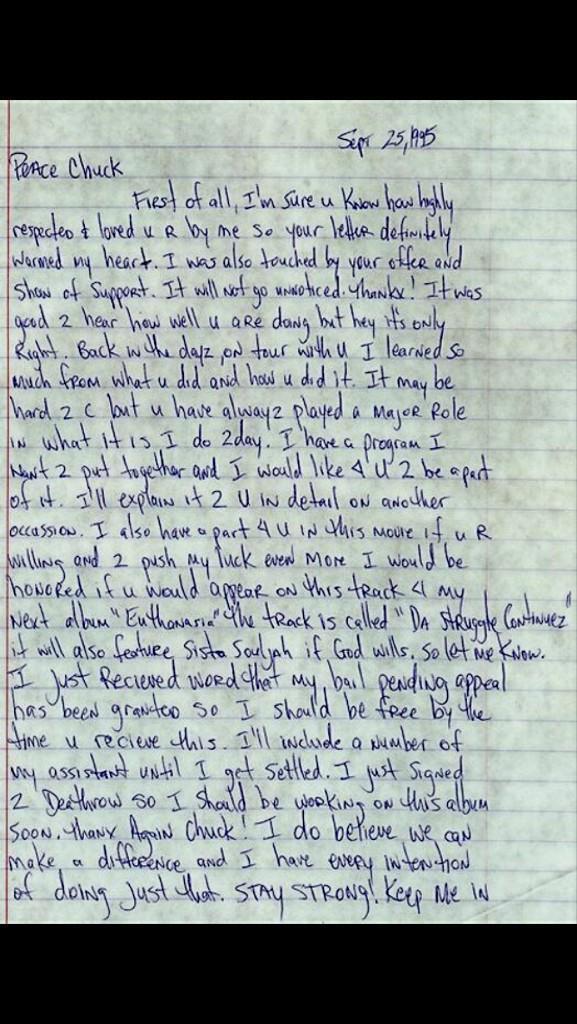 Sept 25, 1995
Peace Chuck
First of all, I'm sure u know how highly
respected & loved u R by me so your letter definitely
warmed my heart. I was also touched by your offer and
show of support. It will not go unnoticed. Thanks! It was
good 2 hear how well u are doing but hey it's only
Right. Back in the dayz, on tour with U I learned so
much from what u did and how u did it. It may be
hard 2 C but u have alwayz played a Major Role
in what it is I do 2day. I have a program I
want 2 put together and I would like 4 U 2 be a part
of it. I'll explain it 2 U in detail on another
occassion. I also have a part 4 U in this movie if u R
willing and 2 push my luck even more I would be
honored if u would appear on this track 4 my
Next album "Euthanasia" the track is called "Da Struggle Continuez"
it will also feature Sista Souljah if God wills. So let me know.
I just Recieved word that my bail pending appeal
has been granted so I should be free by the
time u recieve this. I'll include a number of
my assistant until I get settled. I just signed
2 Deathrow so I should be working on this album
soon. Thanx Again Chuck! I do believe we can
make a difference and I have every intention
of doing just that. STAY STRONG! Keep me in